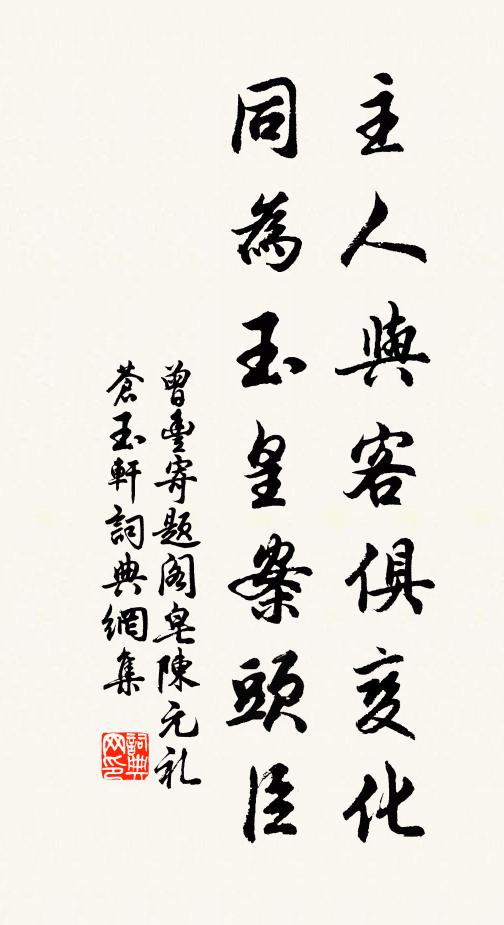 主人與客俱变化
同為玉皇案頭臣
曾豊寄题阁皂陳元礼
蒼玉軒詞典網集
詞典网印